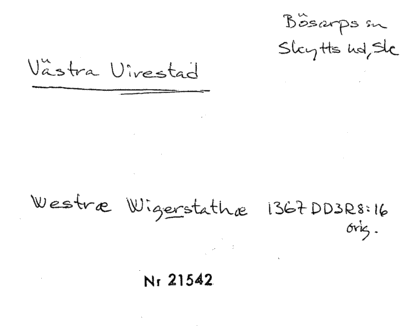 Bösarps sn
Skytts hd, Sk
Västra Virestad
Westræ Wigerstathæ 1367 DD3R8:16
orig.
Nr 21542